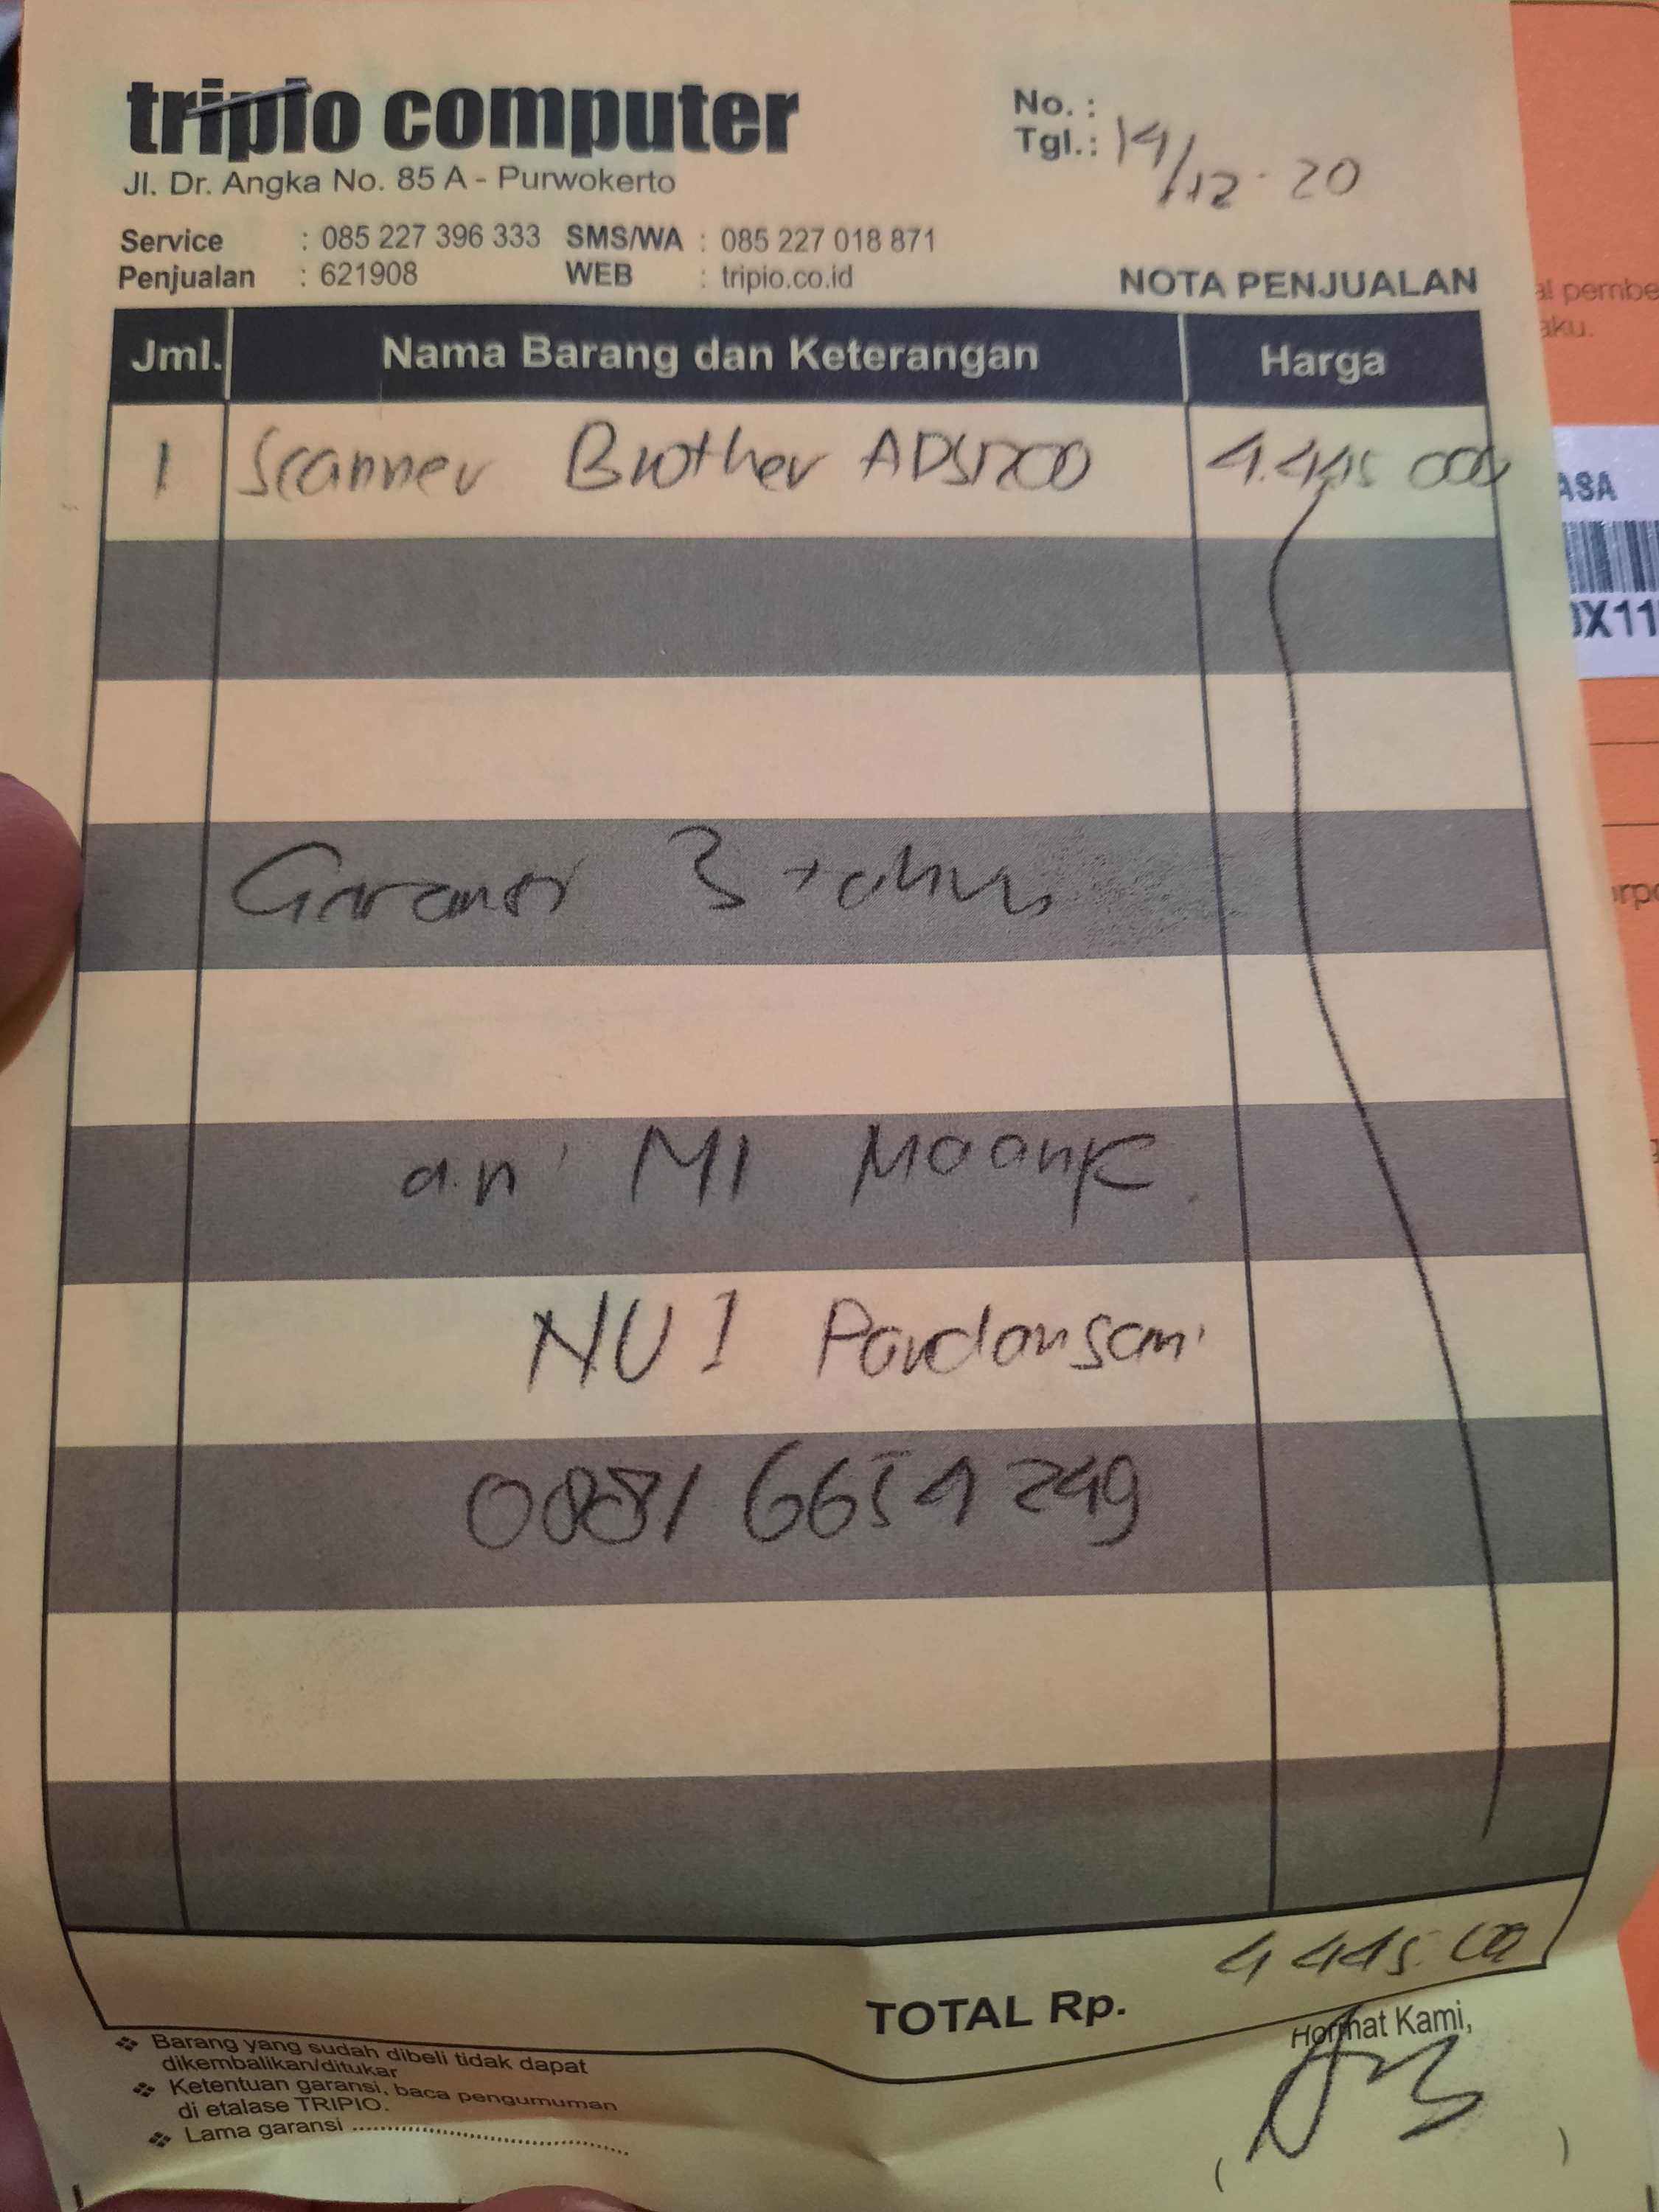 tripio computer
Jl. Dr. Angka No. 85 A - Purwokerto
No. :
Tgl.: 14/12-20
Service : 085 227 396 333 SMS/WA : 085 227 018 871
Penjualan : 621908 WEB : tripio.co.id
NOTA PENJUALAN
Jml. Nama Barang dan Keterangan Harga
1 Scanner Brother ADS1200 4.445 000
Garansi 3 tahun
a.n MI Ma
NU 1 Pandansari
0881 6654 249
TOTAL Rp. 4 445.00
❖ Barang yang sudah dibeli tidak dapat
dikembalikan/ditukar
❖ Ketentuan garansi, baca pengumuman
di etalase TRIPIO.
❖ Lama garansi ..............................
Hormat Kami,
( )
al pembe
aku.
ASA
0X11
orp